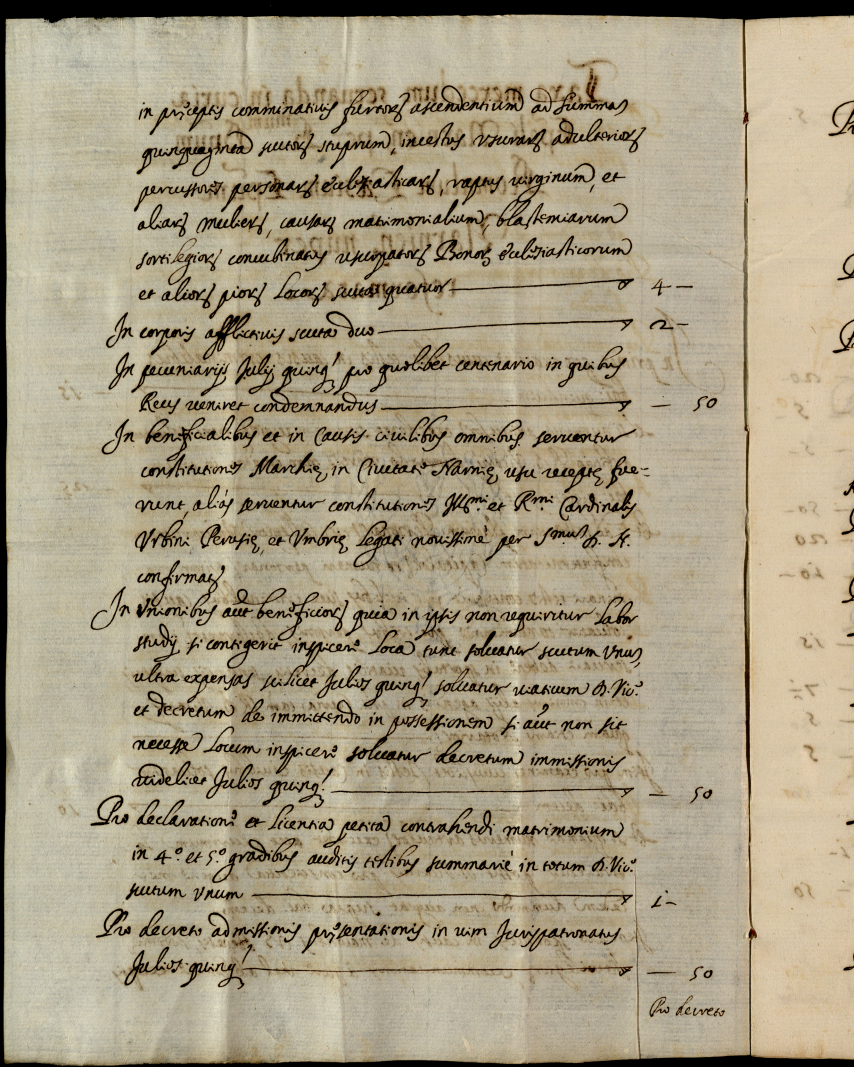 in pręceptis comminativis furtorꝝ ascendentium ad summaꝫ
quinquaginta scutorꝝ stuprum, incestus usurarꝝ adulteriorꝝ
percussores personarꝝ Ecclesiasticarꝝ, raptus virginum, et
aliarꝝ mulierꝝ, causarꝝ matrimonialium, blasfemiarum
sortilegiorꝝ concubinatus usurpatorꝝ Bonorꝝ Ecclesiasticorum
et aliorꝝ piorꝝ Locorꝝ scuta quatuor — 4 —
In corporis afflictivis scuta duo — 2 —
In pecuniarijs Julij quinqꝫ pro quolibet centenario in quibus
Reus veniret condemnandus — — 50
In beneficialibus et in Causis civilibus omnibus serventur
constitutiones Marchię, in Civitate Narnię usu receptę fue=
runt, aliàs serventur constitutiones Jllmi et Rmi Cardinalis
Urbini Perusię, et Umbrię Legati novissime per Smum D. N.
confirmatę
In Unionibus aut beneficiorꝝ quia in ipsis non requiritur Labor
studij, si contigerit inspicere Loca tunc solvatur scutum Unuꝫ
ultra expensas scilicet Julios quinqꝫ solvatur viaticum D. Vico
et decretum de immittendo in possessionem si aut non sit
necesse Locum inspicere solvatur decretum immissionis
videlicet Julios quinqꝫ — — 50
Pro declaratione et Licentia petita contrahendi matrimonium
in 4.o et 5.o gradibus auditis testibus summariè in totum D. Vico
scutum Unum — 1 —
Pro decreto admissionis pręsentationis in vim Jurispatronatus
Julios quinqꝫ — — 50
Pro decreto